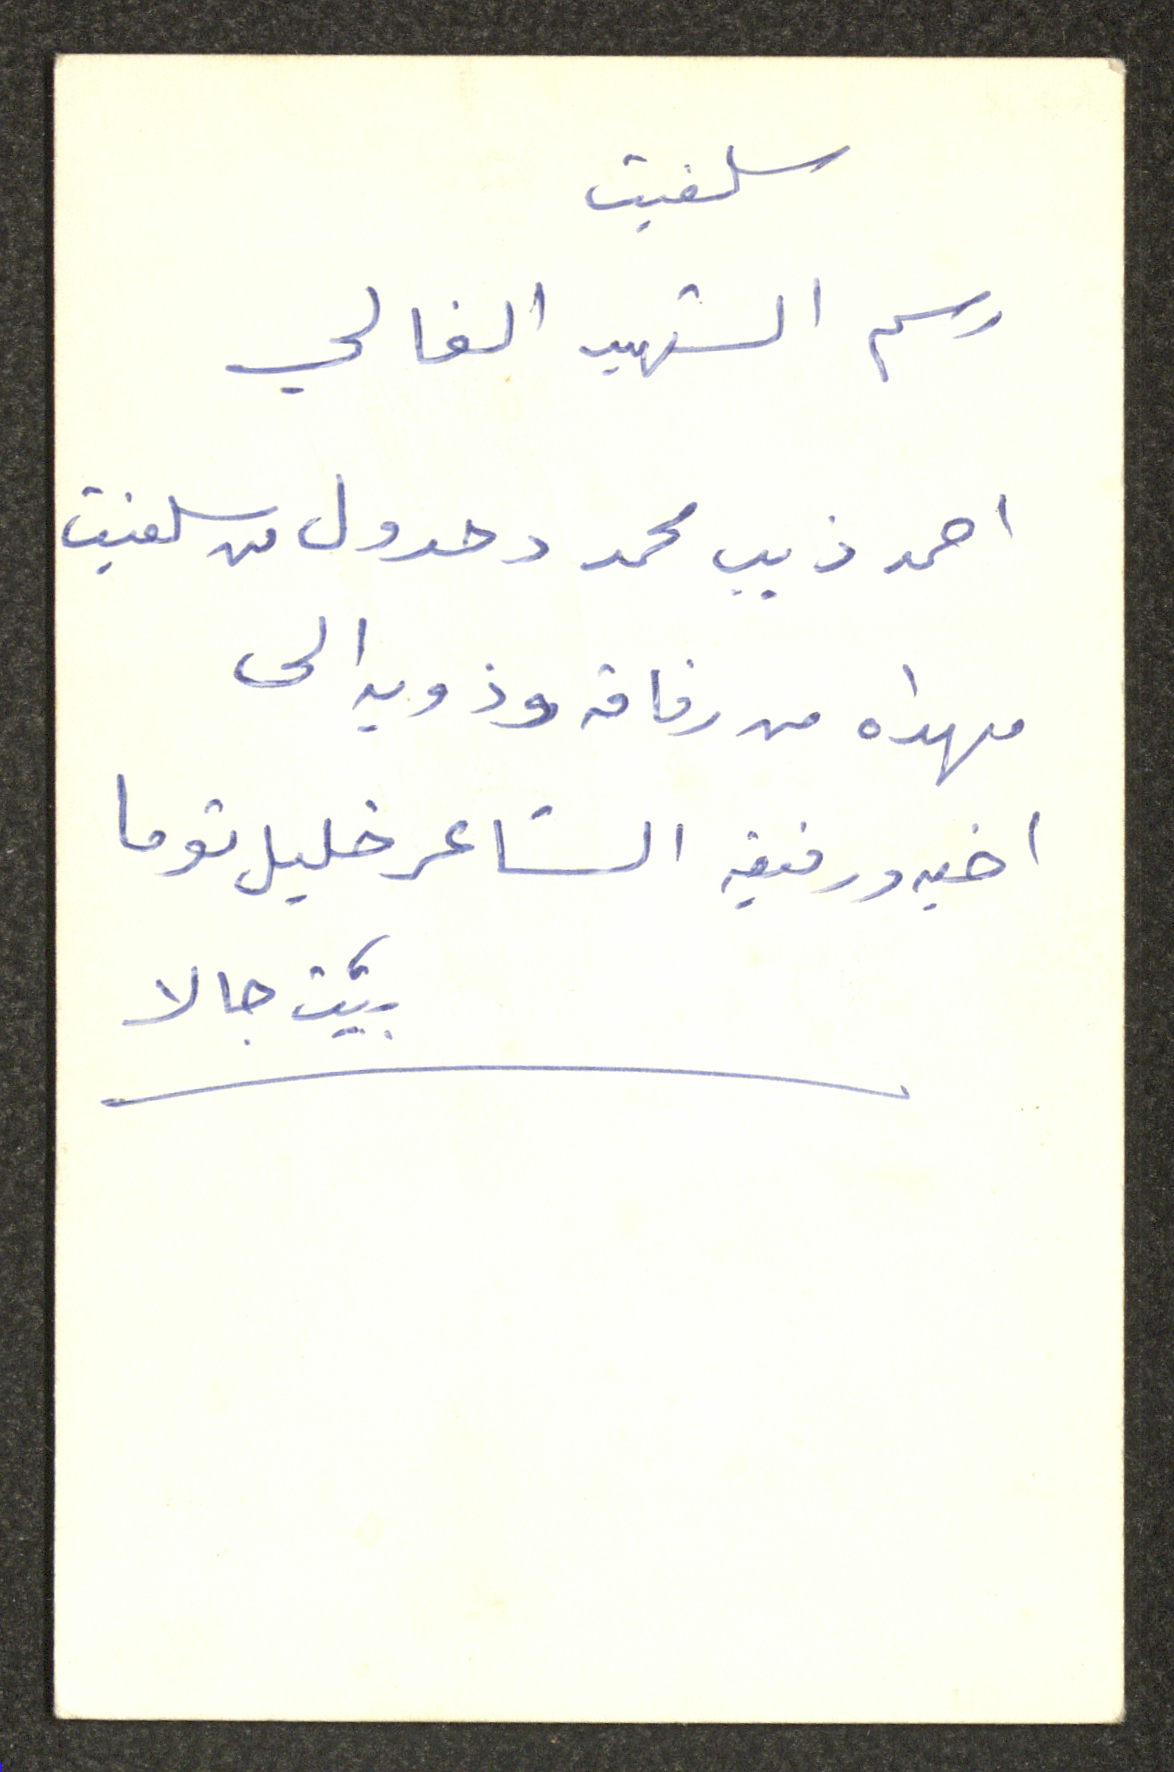 سلفيت
رسم الشهيد الغالي
احمد ذيب محمد دحدول من سلفيت
مهداه من رفاقه وذويه الى
اخيه ورفيقه الشاعر خليل توما
بيت جالا